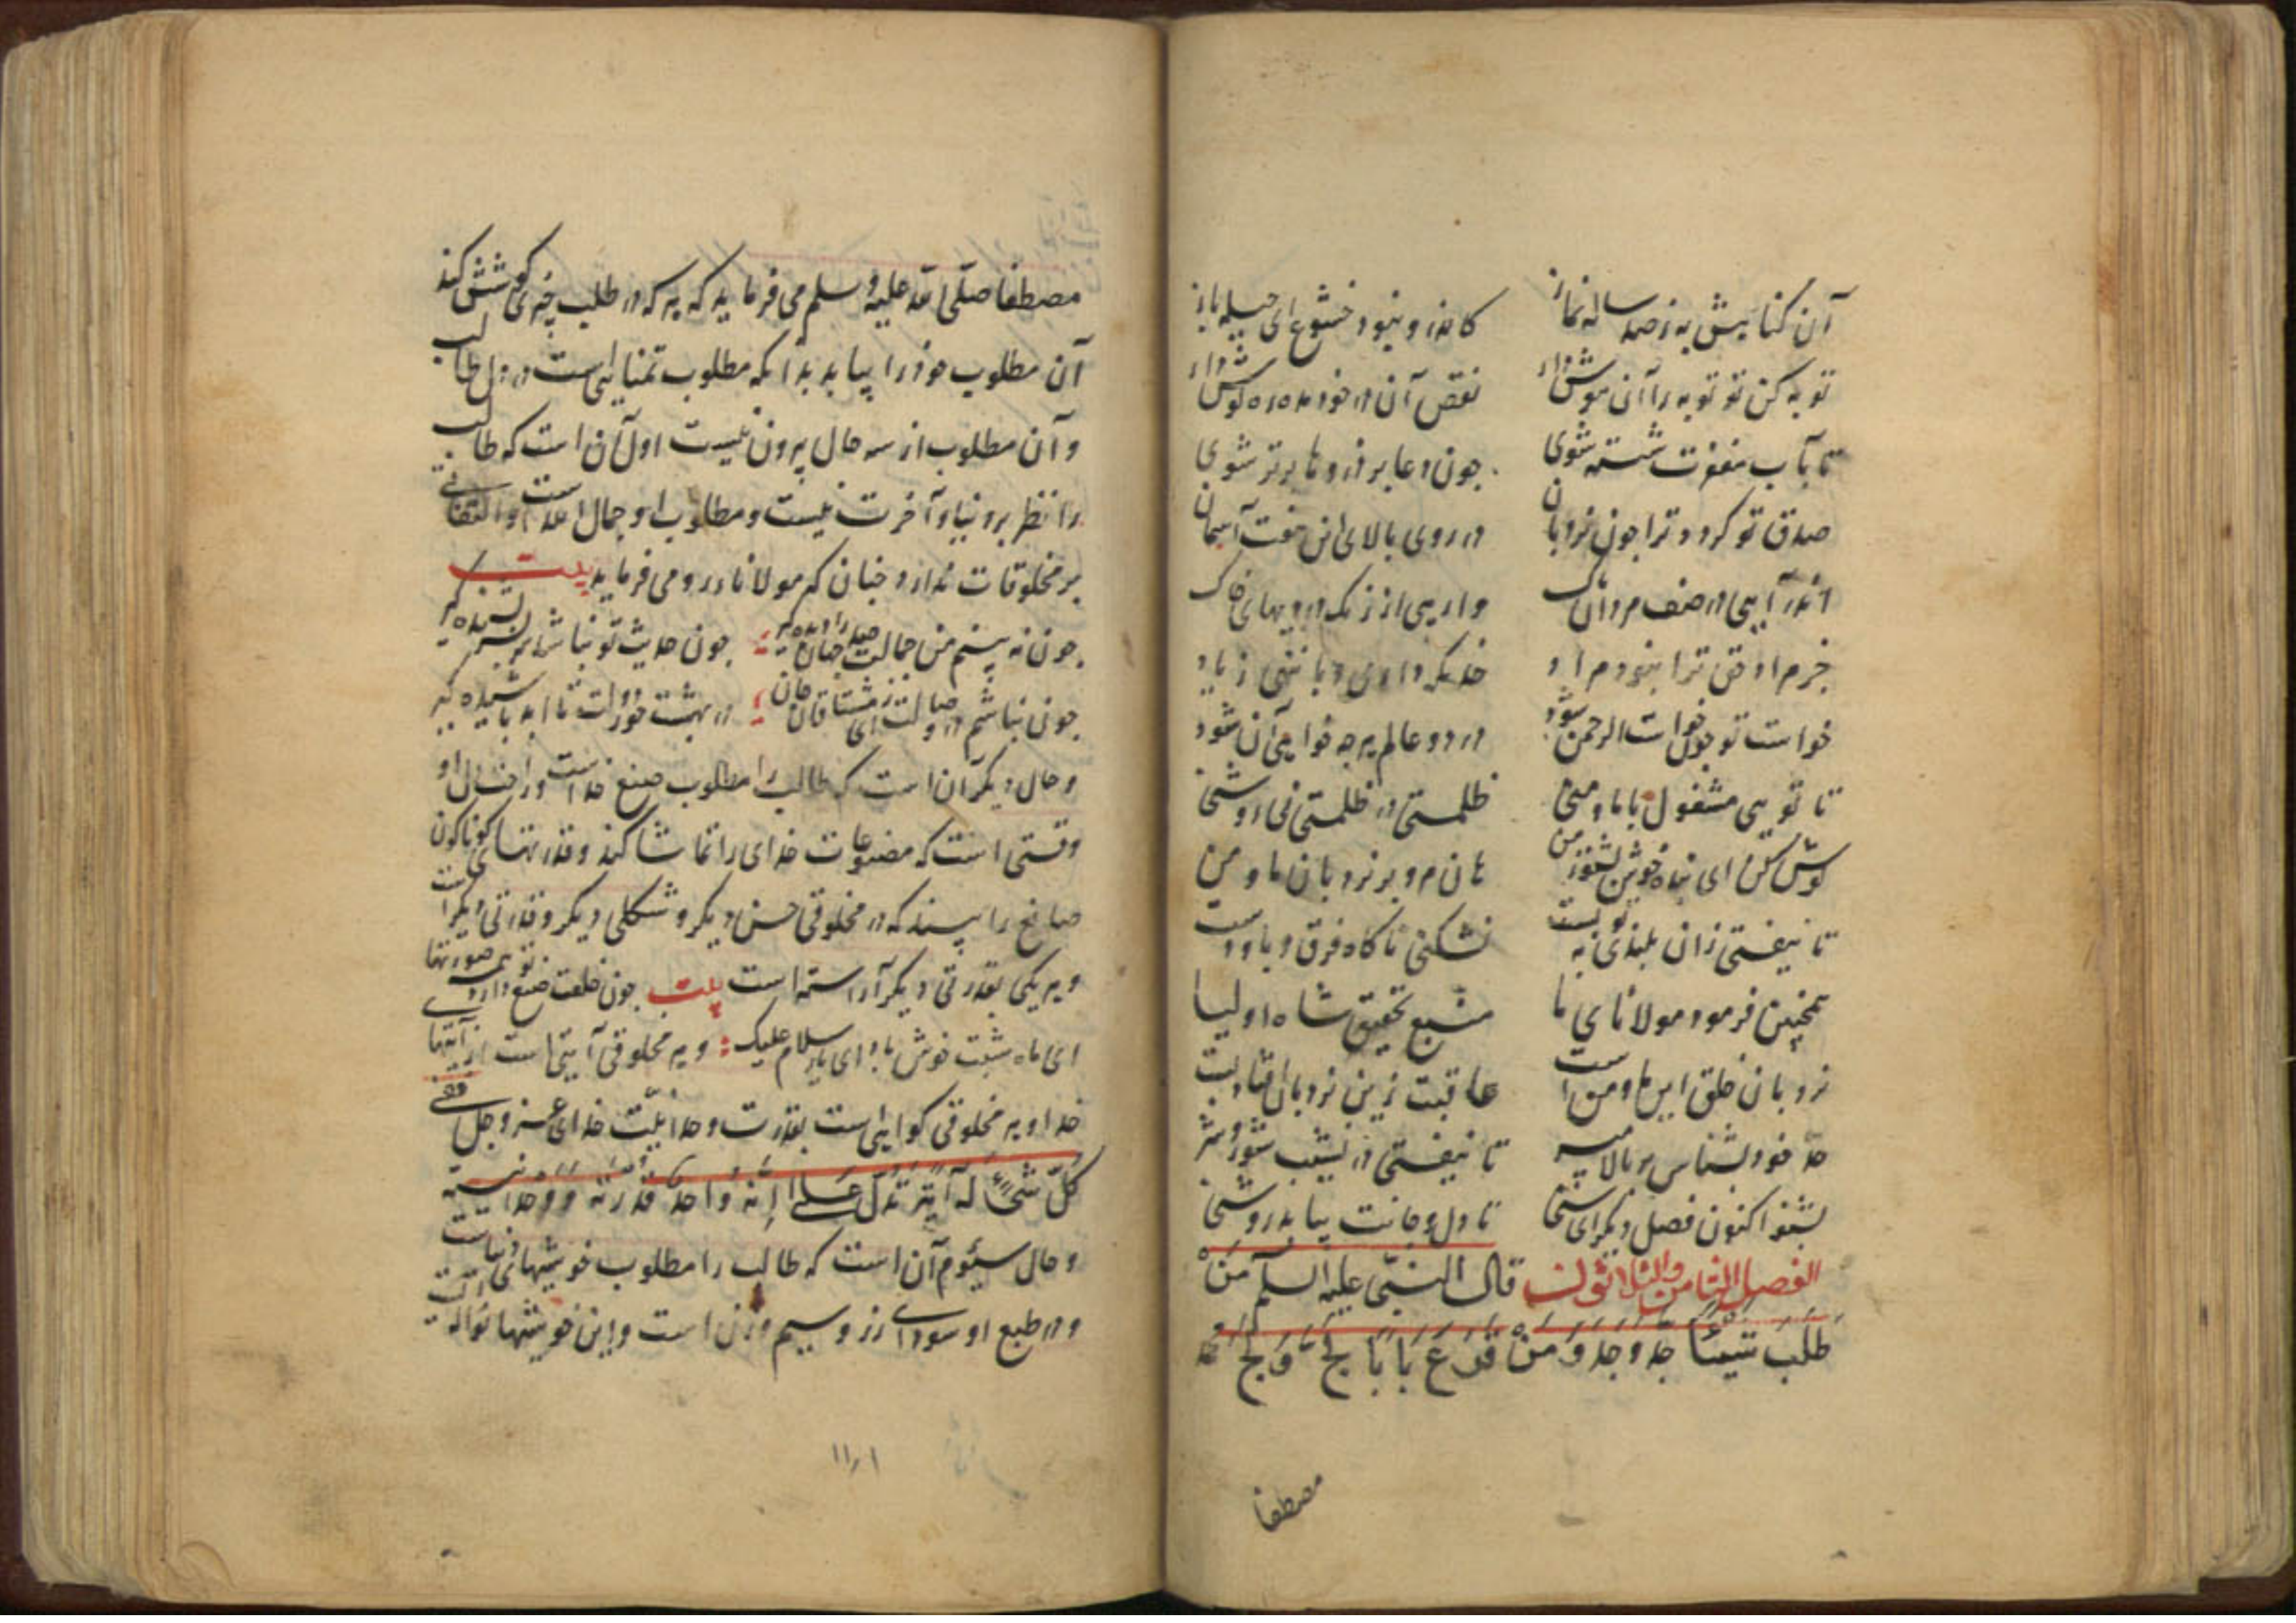 آن کنا بیش به ز صد ساله نماز کاندرو نبود خشوع ای حیله باز
توبه کن تو توبه را آنی هوش دار نقص آن در خود مده ره گوش دار
تا بآب مغفرت شسته شوی چون دعا بر در و تا برتر شوی
صدق تو کردد ترا چون نردبان در روی بالای این هفت آسمان
اندر آیی در صف مردان پاک وارهی از زنک درویهای خاک
جرم او حق ترا بنود مراد
خواست تو چون خواست الرحمن شود در دو عالم هرچه خواهی آن شود
تا تو یی مشغول با ما و منی ظلمتی در ظلمتی نی روشنی
کوش کن ای بنده خویش بشنو ز من هان مرو بر نردبان ما و من
تا نیفتی زان بلندی به تو بست نشکنی ناکاه فرق و پا و دست
همچنین فرمود مولانای ما منبع تحقیق شاه اولیا
نردبان خلق این ما و من است عاقبت زین نردبان افتادنیست
حد خود بشناس بر بالا مپر تا نیفتی در نشیب شور و شر
بشنو اکنون فصل دیکر ای سنی تا دل و جانت بیابد روشنی
الفصل الثامن والثلاثون قال النبی علیه السلم من
طلب شیئا جد وجد ومن قرع بابا لج ولج
مصطفا
مصطفا صلی الله علیه وسلم می فرماید که هر که در طلب چیزی کوشش کند
آن مطلوب خود را بیابد بدانکه مطلوب تمنایی است در دل طالب
و آن مطلوب از سه حال بیرون نیست اول آن است که طالب
را نظر بر دنیا و آخرت نیست و مطلوب او جمال الله است او التفاتی
بر مخلوقات ندارد چنان که مولانا در رومی فرماید بیت
چون نه بینم من جمالت صد جهان را دیده گیر چون حدیث تو نباشد سر بسر بشنیده گیر
چون نباشم در وصالت ای ز مشتاقان جان در بهشت حور دولت تا ابد باشیده گیر
و حال دیکر آن است که طالب را مطلوب صنع خداست و را خشالی او
وقتی است که مصنوعات خدای را تماشا کند و قدرتهای کوناکون
صانع را بیند که در مخلوقی حسن دیکر و شکلی دیکر و قدرتی دیکر است
و هر یکی بقدرتی دیکر آراسته است بیت چون خلعت صنع دارد تو همه صورتها
ای ماه شبت خوش باد ای یار سلام علیک و هر مخلوقی آیتی است از آیتها
خدا و هر مخلوقی کواهی است بقدرت و وحدانیت خدای عزوجل ففی
کل شئ له آیة تدل علی انه واحد قدرته و وحدانیته
و حال سیوم آن است که طالب را مطلوب خوشیهای دنیاست
و در طبع او سودای زر و سیم و زن است و این خوشیها نواله